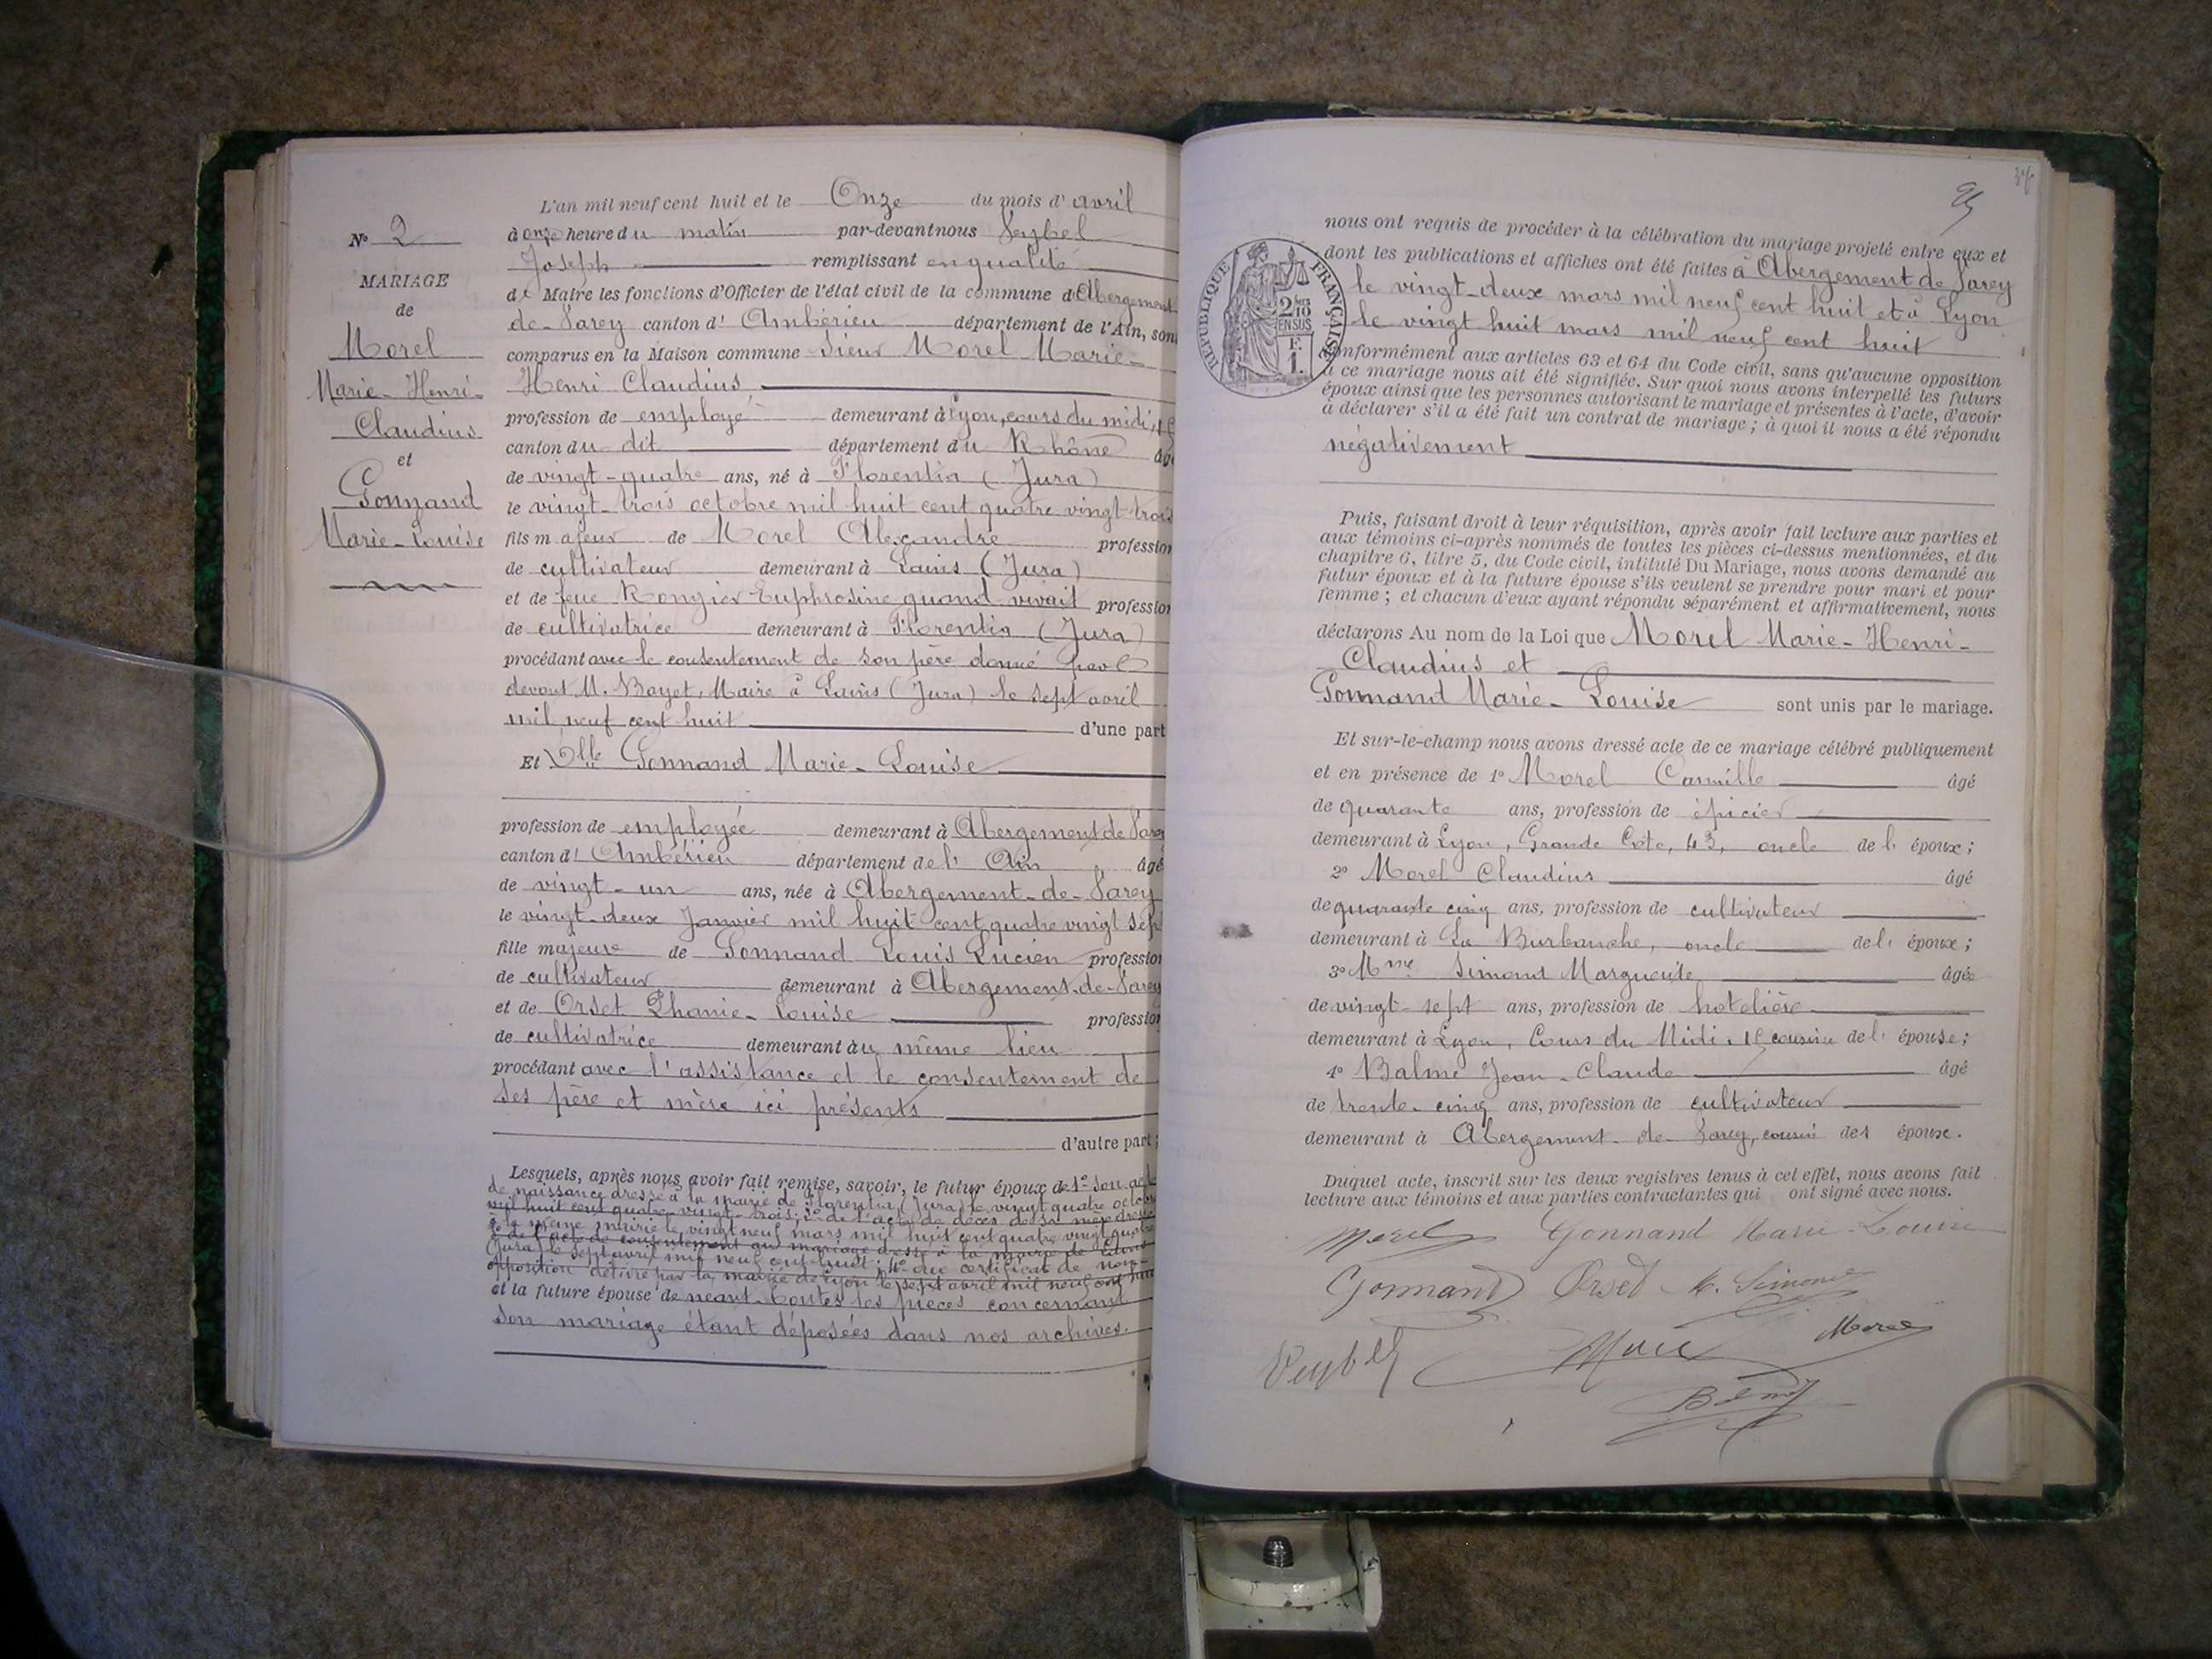 L'an mil neuf cent huit et le Onze du mois d'avril
à onze heure du matin par-devant nous Seybel
Joseph remplissant en qualité
de Maire les fonctions d'Officier de l'état civil de la commune d'Abergement
de-Varey canton d'Ambérieu département de l'Ain, son
comparus en la Maison commune Sieur Morel Marie-
Henri Claudius
profession de employé demeurant à Lyon, cours du midi,
canton du dit département du Rhône âgé
de vingt-quatre ans, né à Florentia (Jura)
le vingt-trois octobre mil huit cent quatre vingt trois
fils majeur de Morel Alexandre profession
de cultivateur demeurant à Lains (Jura)
et de feue Euphrosine quand vivait profession
de cultivatrice demeurant à Florentia (Jura)
procédant avec le consentement de son père donné par
devant M. Bayet, Maire à Lains (Jura) le sept avril
mil neuf cent huit d'une part
Et Dlle Gonnand Marie-Louise
profession de employée demeurant à Abergement de Varey
canton d'Ambérieu département de l'Ain âgé
de vingt-un ans, née à Abergement-de-Varey
le vingt-deux Janvier mil huit cent quatre vingt sep
fille majeure de Gonnand Louis Lucien profession
de cultivateur demeurant à Abergement-de-Varey
et de Orset Phanie-Louise profession
de cultivatrice demeurant au même lieu
procédant avec l'assistance et le consentement de
ses père et mère ici présents
d'autre part;
Lesquels, après nous avoir fait remise, savoir, le futur époux de 1° son acte
de naissance dressé à la mairie de Florentia (Jura) le vingt quatre octobre
mil huit cent quatre-vingt-trois; 2° de l'acte de décès de sa mère dressé
à la même mairie le vingt neuf mars mil huit cent quatre vingt quatre
3° de l'acte de consentement au mariage dressé à la mairie de Lains
(Jura) le sept avril mil neuf cent huit; 4° du certificat de non-
opposition délivré par la mairie de Lyon le sept avril mil neuf cent huit
et la future épouse de néant. Toutes les pièces concernant
son mariage étant déposées dans nos archives.
N° 2
MARIAGE
de
Morel
Marie-Henri-
Claudius
et
Gonnand
Marie-Louise
nous ont requis de procéder à la célébration du mariage projeté entre eux et
dont les publications et affiches ont été faites à Abergement de Varey
le vingt-deux mars mil neuf cent huit et à Lyon
le vingt huit mars mil neuf cent huit
conformément aux articles 63 et 64 du Code civil, sans qu'aucune opposition
à ce mariage nous ait été signifiée. Sur quoi nous avons interpellé les futurs
époux ainsi que les personnes autorisant le mariage et présentes à l'acte, d'avoir
à déclarer s'il a été fait un contrat de mariage; à quoi il nous a été répondu
négativement
RÉPUBLIQUE FRANÇAISE
2/10
EN SUS
F.
1.
Puis, faisant droit à leur réquisition, après avoir fait lecture aux parties et
aux témoins ci-après nommés de toutes les pièces ci-dessus mentionnées, et du
chapitre 6, titre 5, du Code civil, intitulé Du Mariage, nous avons demandé au
futur époux et à la future épouse s'ils veulent se prendre pour mari et pour
femme; et chacun d'eux ayant répondu séparément et affirmativement, nous
déclarons Au nom de la Loi que Morel Marie-Henri-
Claudius et
Gonnand Marie-Louise sont unis par le mariage.
Et sur-le-champ nous avons dressé acte de ce mariage célébré publiquement
et en présence de 1° Morel Camille âgé
de quarante ans, profession de épicier
demeurant à Lyon, Grande Côte, 43, oncle de l'époux;
2° Morel Claudius âgé
de quarante cinq ans, profession de cultivateur
demeurant à La Burbanche, oncle de l'époux;
3° Mme Simond Marguerite âgée
de vingt-sept ans, profession de hotelière
demeurant à Lyon, Cours du Midi, cousine de l'épouse;
4° Balme Jean-Claude âgé
de trente-cinq ans, profession de cultivateur
demeurant à Abergement-de-Varey, cousin des époux.
Duquel acte, inscrit sur les deux registres tenus à cet effet, nous avons fait
lecture aux témoins et aux parties contractantes qui ont signé avec nous.
Morel Gonnand Marie-Louise
Gonnand Orset M. Simond
Morel